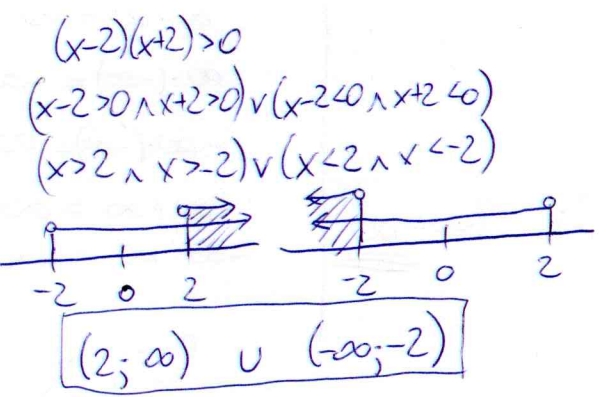 (x-2)(x+2)>0
(x-2>0 ∧ x+2>0) ∨ (x-2<0 ∧ x+2<0)
(x>2 ∧ x>-2) ∨ (x<2 ∧ x<-2)
-2 0 2 -2 0 2
(2; ∞) ∪ (-∞; -2)